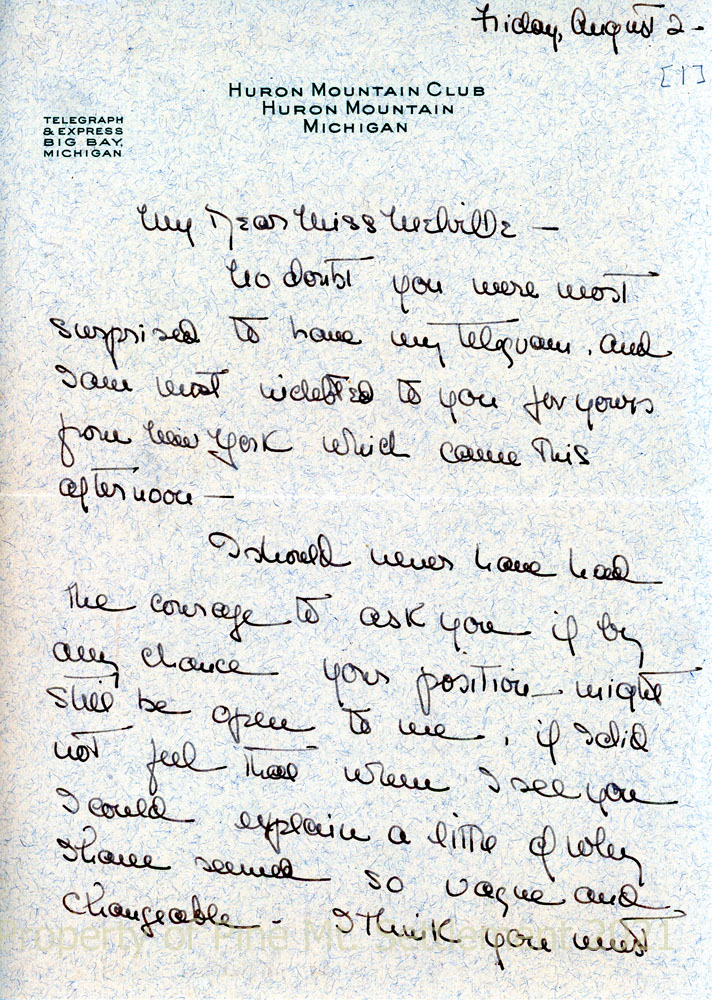 Friday, August 2 -
[1]
HURON MOUNTAIN CLUB
HURON MOUNTAIN
MICHIGAN
TELEGRAPH
& EXPRESS
BIG BAY,
MICHIGAN
My Dear Miss Melville —
No doubt you were most
surprised to have my telegram, and
I am most indebted to you for yours
from New York which came this
afternoon —
I should never have had
the courage to ask you if by
any chance your position might
still be open to me, if I did
not feel that when I see you
I could explain a little of why
I have seemed so vague and
changeable - I think you must
Property of Pine Mt. Settlement 2071